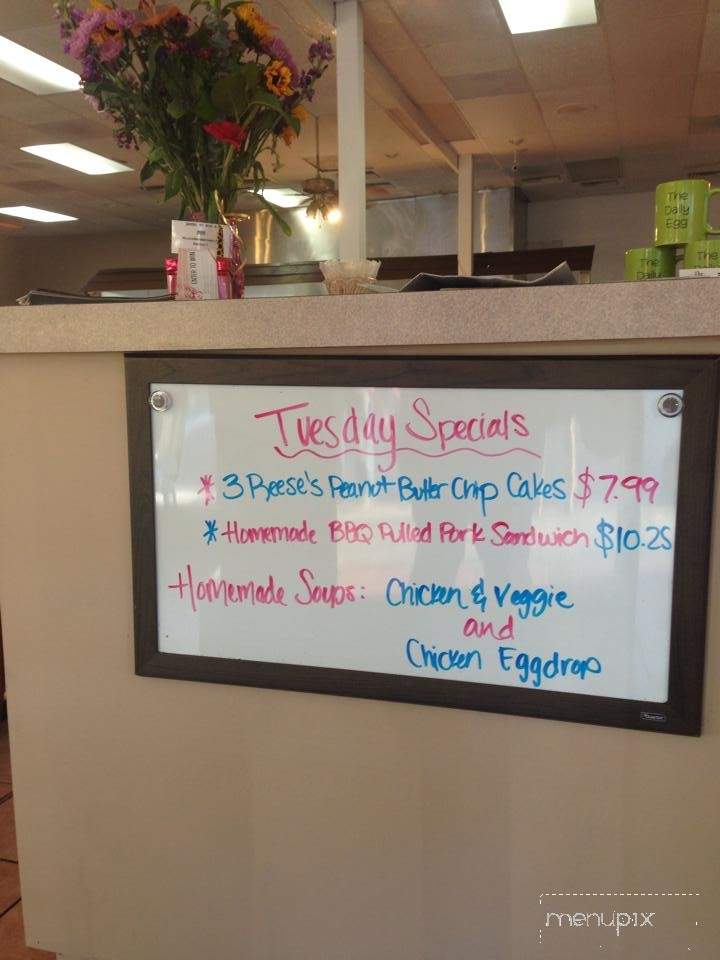 The
Daily
Egg
The
Daily
The
ENTER TO WIN
Tuesday Specials
* 3 Reese's Peanut Butter Chip Cakes $7.99
* Homemade BBQ Pulled Pork Sandwich $10.25
Homemade Soups: Chicken & Veggie
and
Chicken Eggdrop
menupix